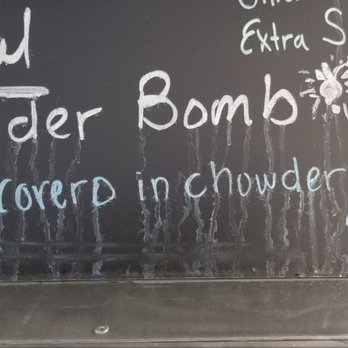 Extra S
der Bomb
corerd in chowder